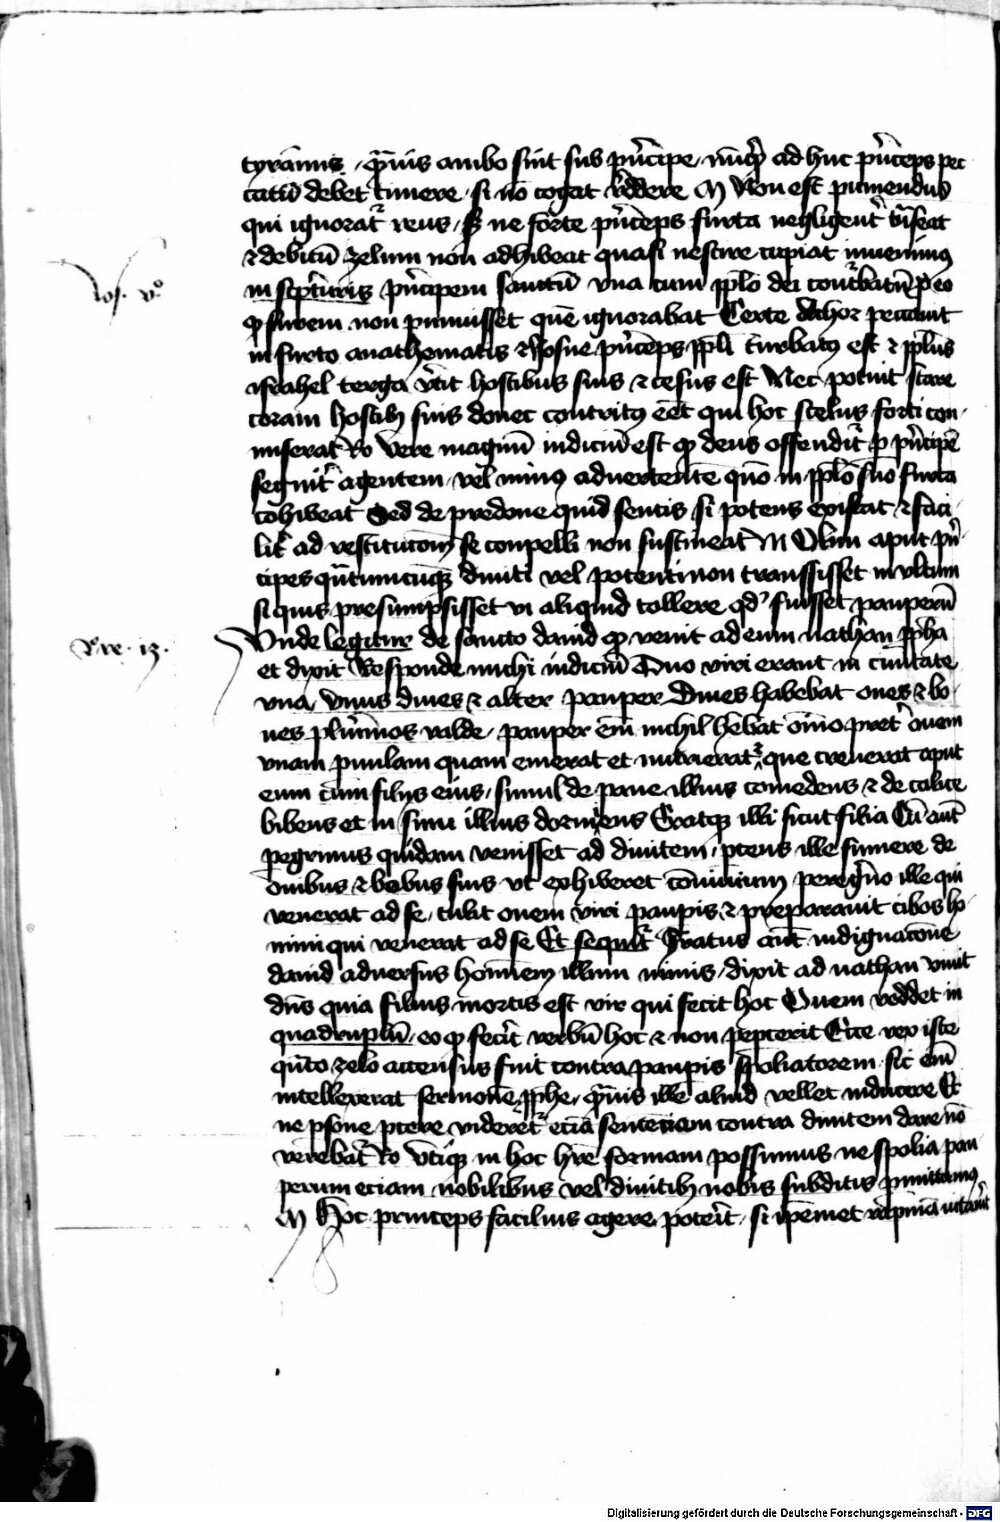 tyrannis. qͣuis ambo sint sub pͥncipe. nūqͥd ad huc pͥnceps pec
catū debet timere. si nō cogat reddere M Non est puniendus
qui ignoratͬ reus. s; ne forte pͥnceps furta negligentͬ tͣnseat
& debitū zelum non adhibeat quasi nescire cupiat inuenimus
Ios. vͦ.
in scpͥturis pͥncipem sanctū una cum pplo dei conturbatū p eo
qͩ furem non puniisset quē ignorabat Certe Achor peccauit
in furto anathematis & Iosue pͥnceps ppli turbatus est & pplus
israhel terga vͬtit hostibus suis & cesus est Nec potuit stare
coram hostibꝫ suis donec contritus eēt qui hoc scelus forti con-
miserat Rͦ Vere magnū iudiciū est qͩ deus offenditͬ p pͥncipē
segnitͬ agentem. vel minus aduertente quō in pplo suo furta
cohibeat Sed de predone quid sentis si potens existat & faci-
litͬ ad restitucōm se conpelli non sustineat M Olim aput pͥn-
cipes qͣntumcūqꝫ diuiti vel potenti non transisset inultum
si quis presumpsisset vi aliquid tollere qdͥ fuisset pauperū
Rͤ. re. 12.
Unde legitur de sancto dauid qͩ venit ad eum nathan ppha
et dixit Responde michi iudiciū Duo viri erant in ciuitate
una. Unus diues & alter pauper Diues habebat oues & bo-
ues plurimos valde. pauper em̄ nichil hēbat ōnīo pretͬ ouem
unam paruulam quam emerat et nutrieratͬ. que creuerat aput
eum cum filijs eius. simul de pane illius comedens & de calice
bibens et in sinu illius dormiens Eratqꝫ illi sicut filia Cū aūt
pegrinus quidam venisset ad diuitem. pcens ille sumere de
ouibus & bobus suis ut exhiberet conuiuium peregͥno ille qui
venerat ad se. tulit ouem viri paupis & preparauit cibos ho-
mini qui venerat ad se Et sequitͬ Iratus aūt indignacōne
dauid aduersus hominem illum nimis. dixit ad nathan viuit
dn̄s quia filius mortis est vir qui fecit hoc Ouem reddet in
quadruplū. eo qͩ fecit verbū hoc & non pepcerit Ecce rex iste
qͣnto zelo accensus fuit contra paupis spoliatorem. sic em̄
intellexerat sermonē pphe. qͣuis ille aliud vellet inducere Et
ne psone pcere videretͬ eciā sentenciam contra diuitem dare nō
verebatͬ Rͦ Vtiqꝫ in hoc hr̄e formam possumus ne spolia pau-
perum eciam nobilibus vel diuitibꝫ nobis subditis pmittamus
M Hoc princeps facilius agere potͥt. si ip̄emet rapinā